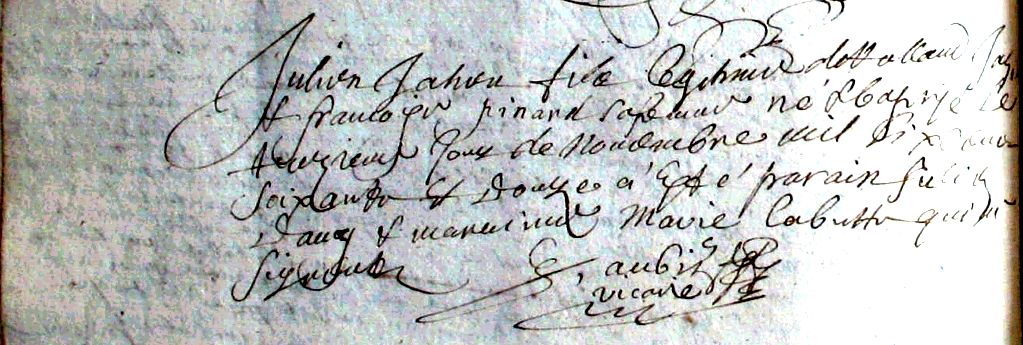 Julien Jahen filz legitime de
et francoise pinard sa femme né & baptizé le
jour de Novembre mil six cent
soixante et douze a esté parain Julien
& maraine Marie Labutte qui ne
signent
aubin
vicaire